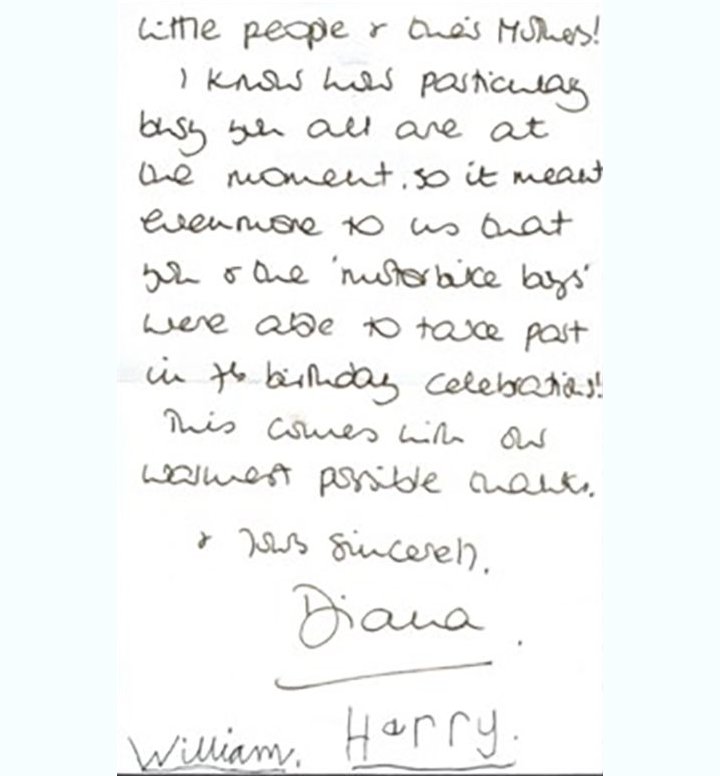 little people & their Mothers!
I know how particularly
busy you all are at
the moment, so it meant
even more to us that
you & the 'motorbike boys'
were able to take part
in 7th birthday celebrations!
This comes with our
warmest possible thanks.
& Yours sincerely,
Diana.
William. Harry.